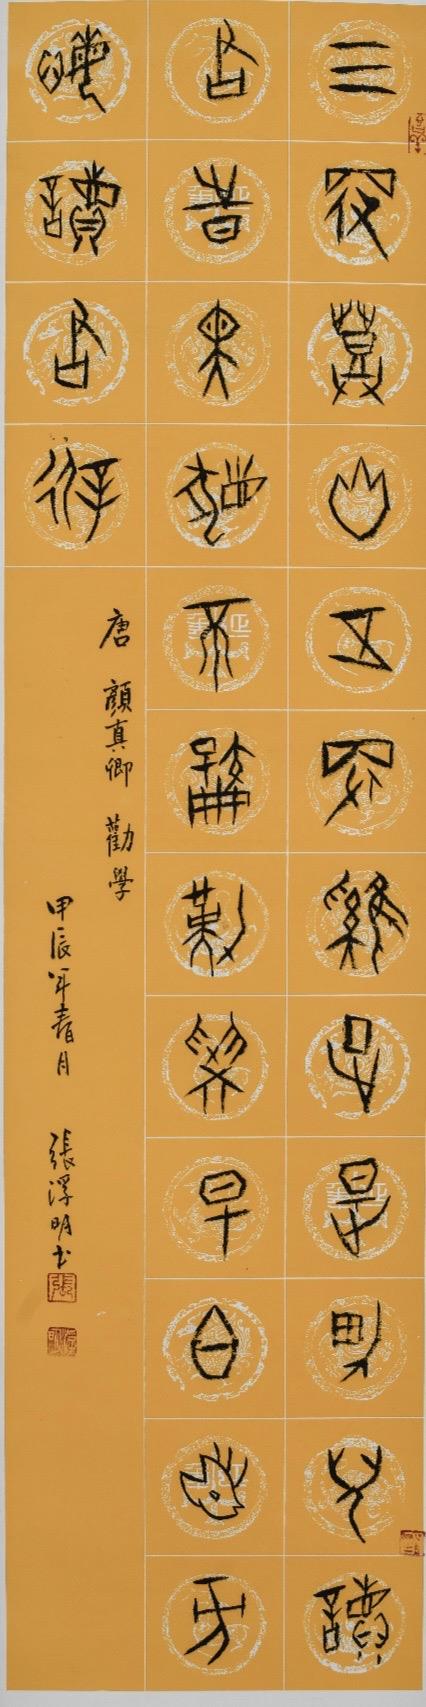 三更燈火五更雞正是男兒讀
書時黑髮不知勤學早白首方
悔讀書遲
唐 顏真卿 勸學
甲辰年春月 張浮明书
張